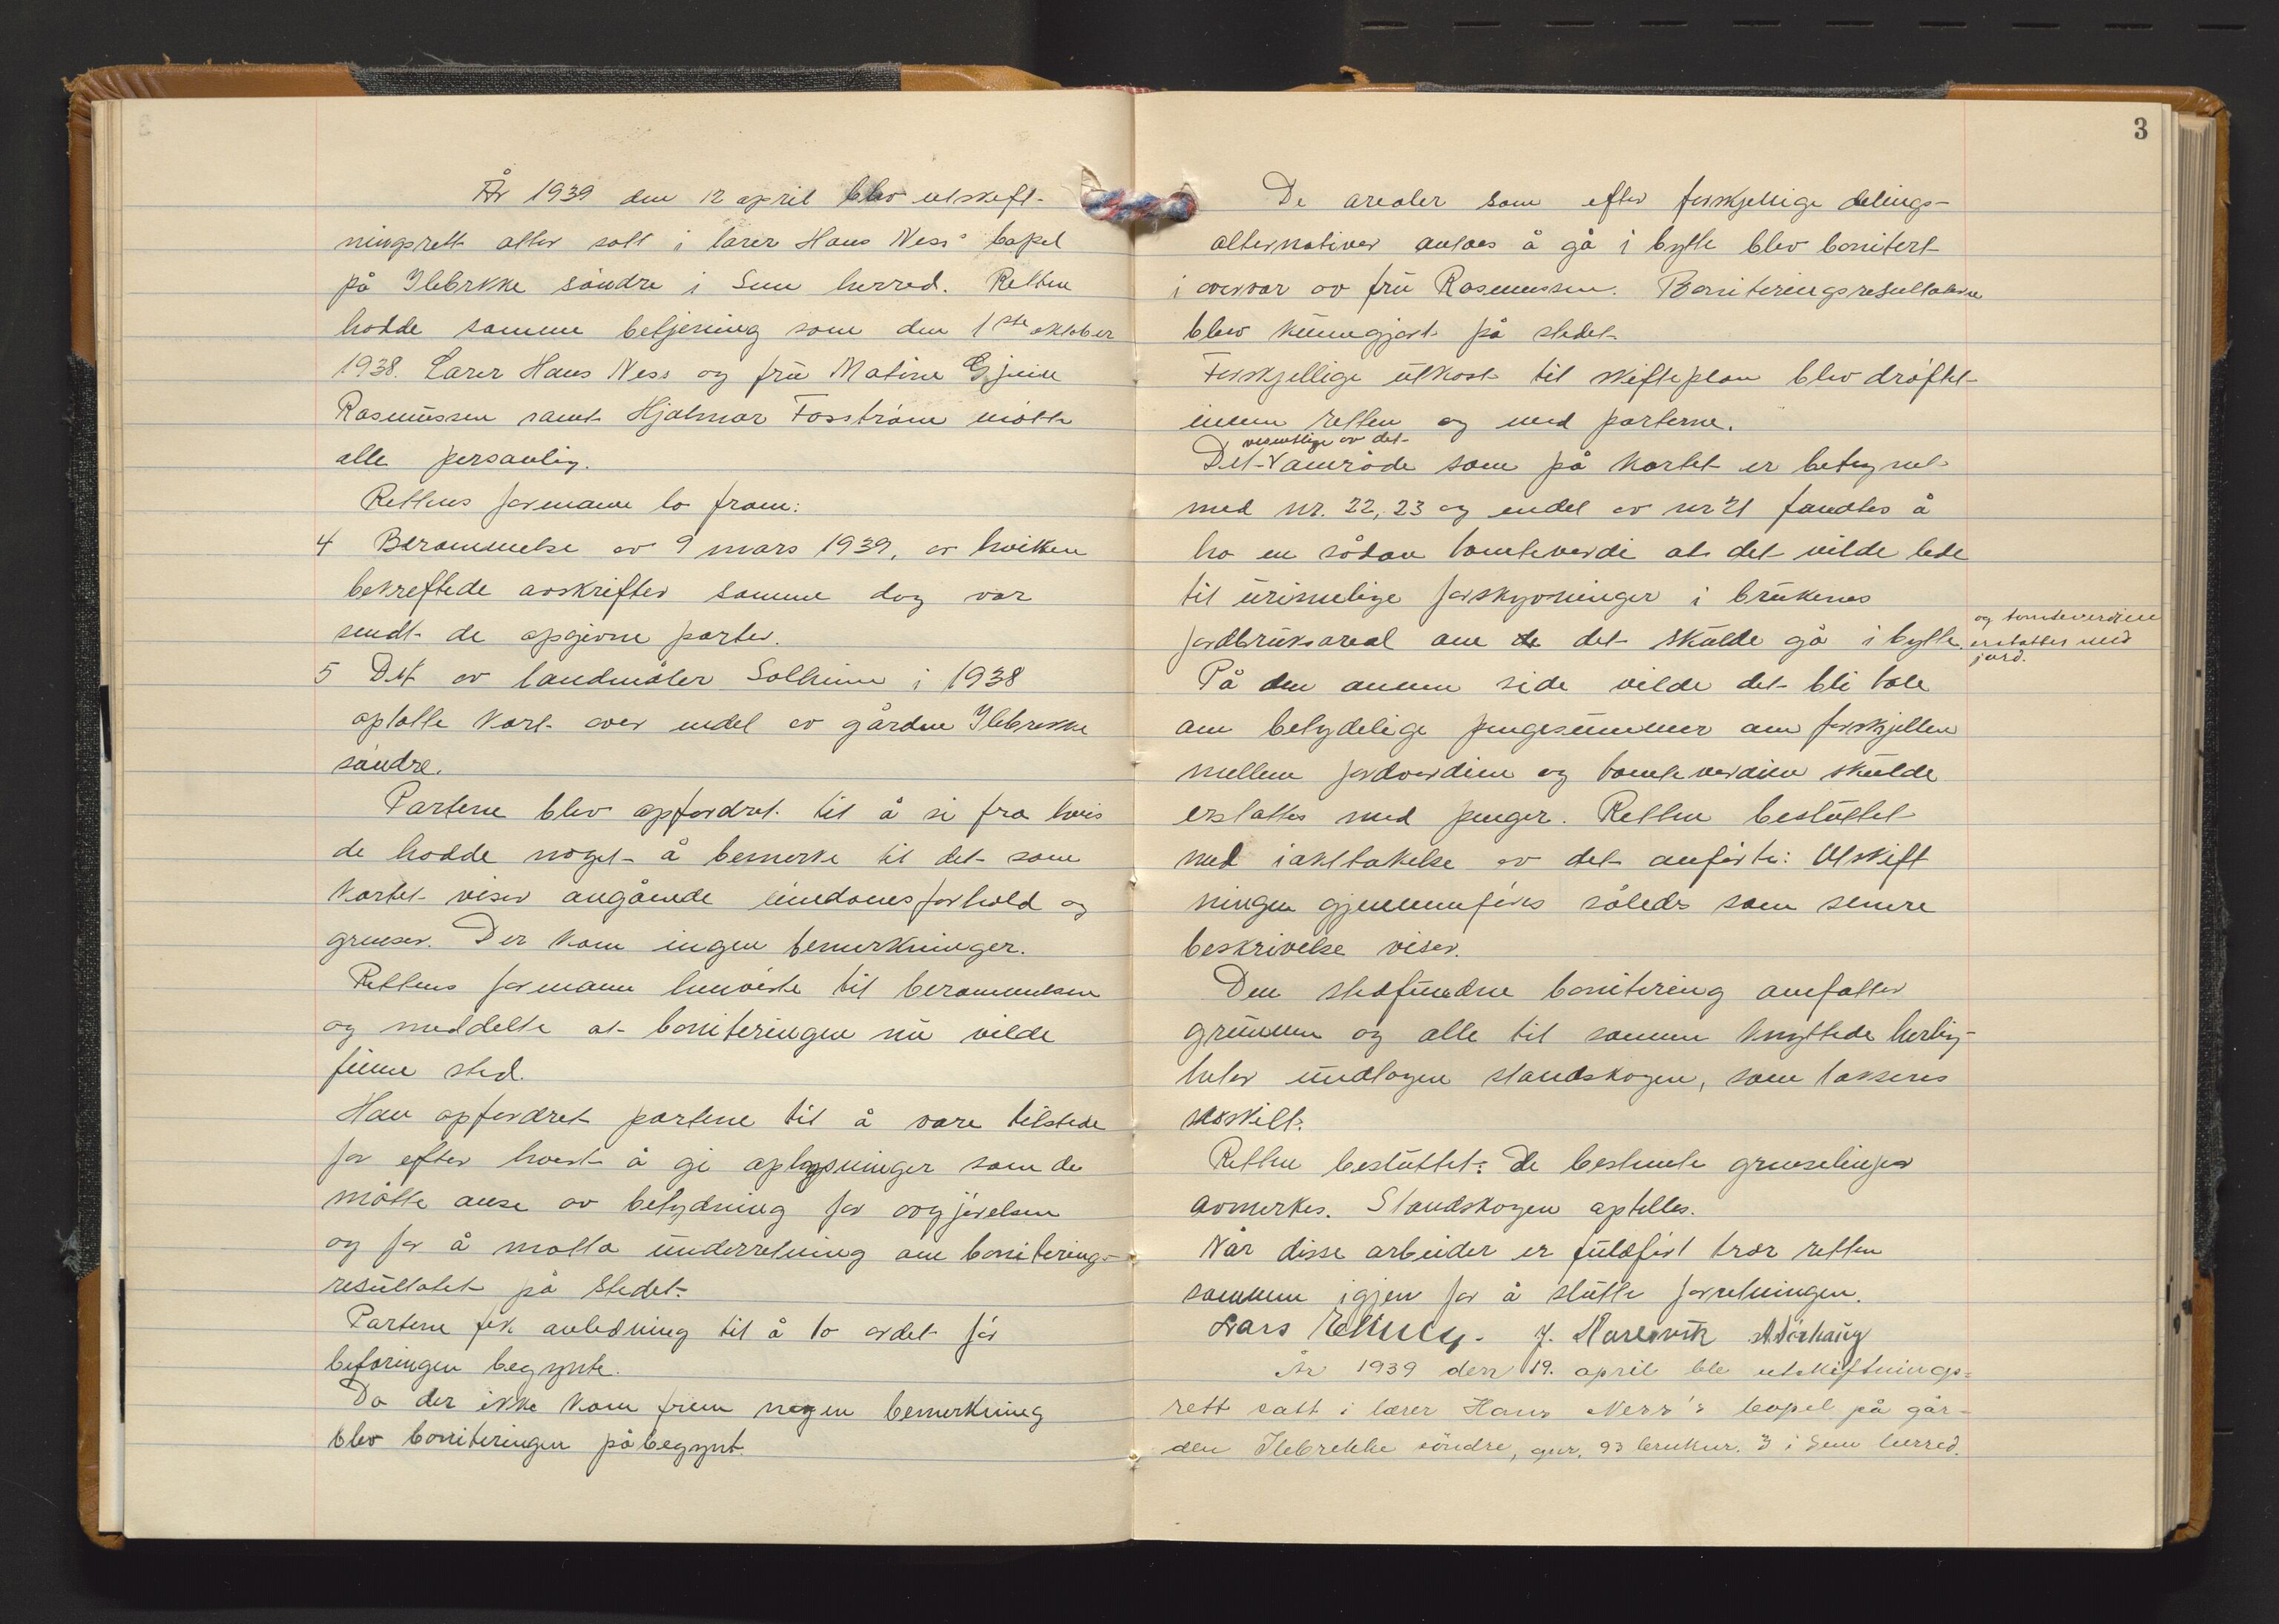 År 1939 den 12 april blev utskift-
ningsrett atter satt i lærer Hans Ness' bopel
på Ilebrekke søndre i Sem herred. Retten
hadde samme betjening som den 1ste oktober
1938. Lærer Hans Ness og fru Matine Gjeine
Rasmussen samt Hjalmar Fosstrøm møtte
alle personlig.
Rettens formann la fram:
4 Berammelse av 9 mars 1939, av hvilken
bekreftede avskrifter samme dag var
sendt de opgivne parter.
5 Det av landmåler Solheim i 1938
optatte kart over endel av gården Ilebrekke
søndre.
Partene blev opfordret til å si fra hvis
de hadde noget å bemerke til det som
kartet viser angående eiendomsforhold og
grenser. Der kom ingen bemerkninger.
Rettens formann henviste til berammelsen
og meddelte at boniteringen nu vilde
finne sted.
Han opfordret partene til å være tilstede
for efter hvert å gi oplysninger som de
måtte anse av betydning for avgjørelsen
og for å motta underretning om boniterings-
resultatet på stedet.
Partene fik anledning til å ta ordet før
befaringen begynte.
Da der ikke kom frem nogen bemerkning
blev boniteringen påbegynt.
3
De arealer som efter forskjellige delings-
alternativer antaes å gå i bytte blev bonitert
i overvær av fru Rasmussen. Boniteringsresultatene
blev kunngjort på stedet.
Forskjellige utkast til skifteplan blev drøftet
innen retten og med parterne.
vesentlige av det
Det område som på kartet er betegnet
med nr. 22, 23 og endel av nr 21 fandtes å
ha en sådan tomteverdi at det vilde lede
til urimelige forskyvninger i brukenes
jordbruksareal om det skulde gå i bytte.
og tomteverdien
erstattes med
jord.
På den annen side vilde det bli tale
om betydelige pengesummer om forskjellen
mellem jordverdien og tomteverdien skulde
erstattes med penger. Retten besluttet
med iakttakelse av det anførte: Utskift
ningen gjennemføres således som senere
beskrivelse viser.
Den stedfundne bonitering omfatter
grunnen og alle til samme knyttede herlig-
heter undtagen standskogen, som takseres
særskilt.
Retten besluttet: De bestemte grenselinjer
avmerkes. Standskogen optelles.
Når disse arbeider er fuldført trær retten
sammen igjen for å slutte forretningen.
Lars
År 1939 den 19. april ble utskiftnings-
rett satt i lærer Hans Ness's bopel på går-
den Ilebrekke søndre, gnr. 93 bruksnr. 3 i Sem herred.